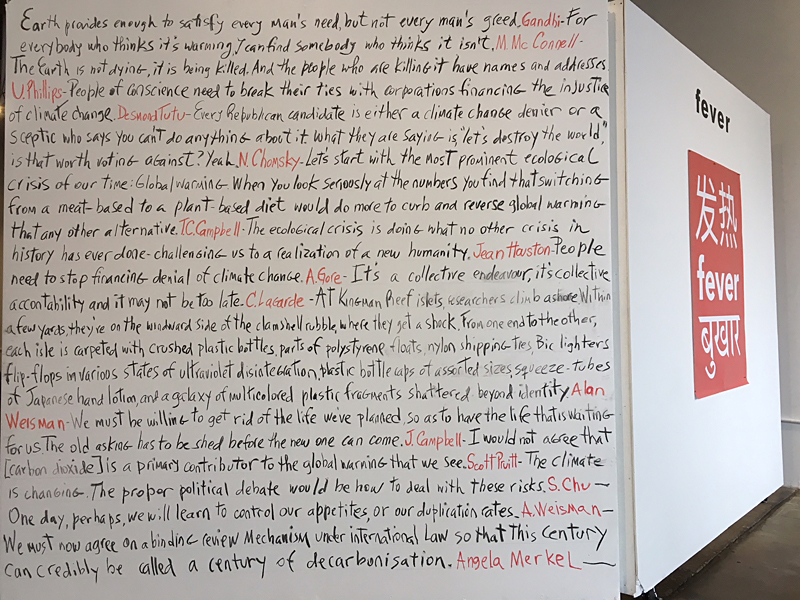 Earth provides enough to satisfy every man's need, but not every man's greed. Gandhi - For
everybody who thinks it's warming, I can find somebody who thinks it isn't. M. Mc Connell -
The Earth is not dying, it is being killed. And the people who are killing it have names and addresses.
U. Phillips - People of conscience need to break their ties with corporations financing the injustice
of climate change. Desmond Tutu - Every Republican candidate is either a climate change denier or a
sceptic who says you can't do anything about it. What they are saying is, "let's destroy the world",
is that worth voting against? Yeah. N. Chomsky - Let's start with the most prominent ecological
crisis of our time: Global warming. When you look seriously at the numbers you find that switching
from a meat-based to a plant-based diet would do more to curb and reverse global warming
that any other alternative. T.C. Campbell - The ecological crisis is doing what no other crisis in
history has ever done - challenging us to a realization of a new humanity. Jean Houston - People
need to stop financing denial of climate change. A. Gore - It's a collective endeavour, it's collective
accontability and it may not be too late. C. Lagarde - At Kingman Reef islets, researchers climb ashore. Within
a few yards, they're on the windward side of the clamshell rubble, where they get a shock. From one end to the other,
each isle is carpeted with crushed plastic bottles, parts of polystyrene floats, nylon shipping tres, Bic lighters
flip-flops in various states of ultraviolet disintegration, plastic bottle caps of assorted sizes, squeeze-tubes
of Japanese hand lotion, and a galaxy of multicolored plastic fragments shattered beyond identity. Alan
Weisman - We must be willing to get rid of the life we've planned, so as to have the life that is waiting
for us. The old asking has to be shed before the new one can come. J. Campbell - I would not agree that
[carbon dioxide] is a primary contributor to the global warning that we see. Scott Pruitt - The climate
is changing. The proper political debate would be how to deal with these risks. S. Chu -
One day, perhaps, we will learn to control our appetites, or our duplication rates. A. Weisman -
We must now agree on a binding review Mechanism under international Law so that this century
can credibly be called a century of decarbonisation. Angela Merkel -
fever
发热
fever
बुखार